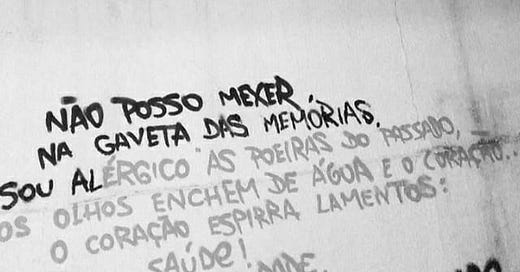 NÃO POSSO MEXER,
NA GAVETA DAS MEMÓRIAS.
SOU ALÉRGICO AS POEIRAS DO PASSADO,
OS OLHOS ENCHEM DE ÁGUA E O CORAÇÃO...
O CORAÇÃO ESPIRRA LAMENTOS:
SAÚDE!